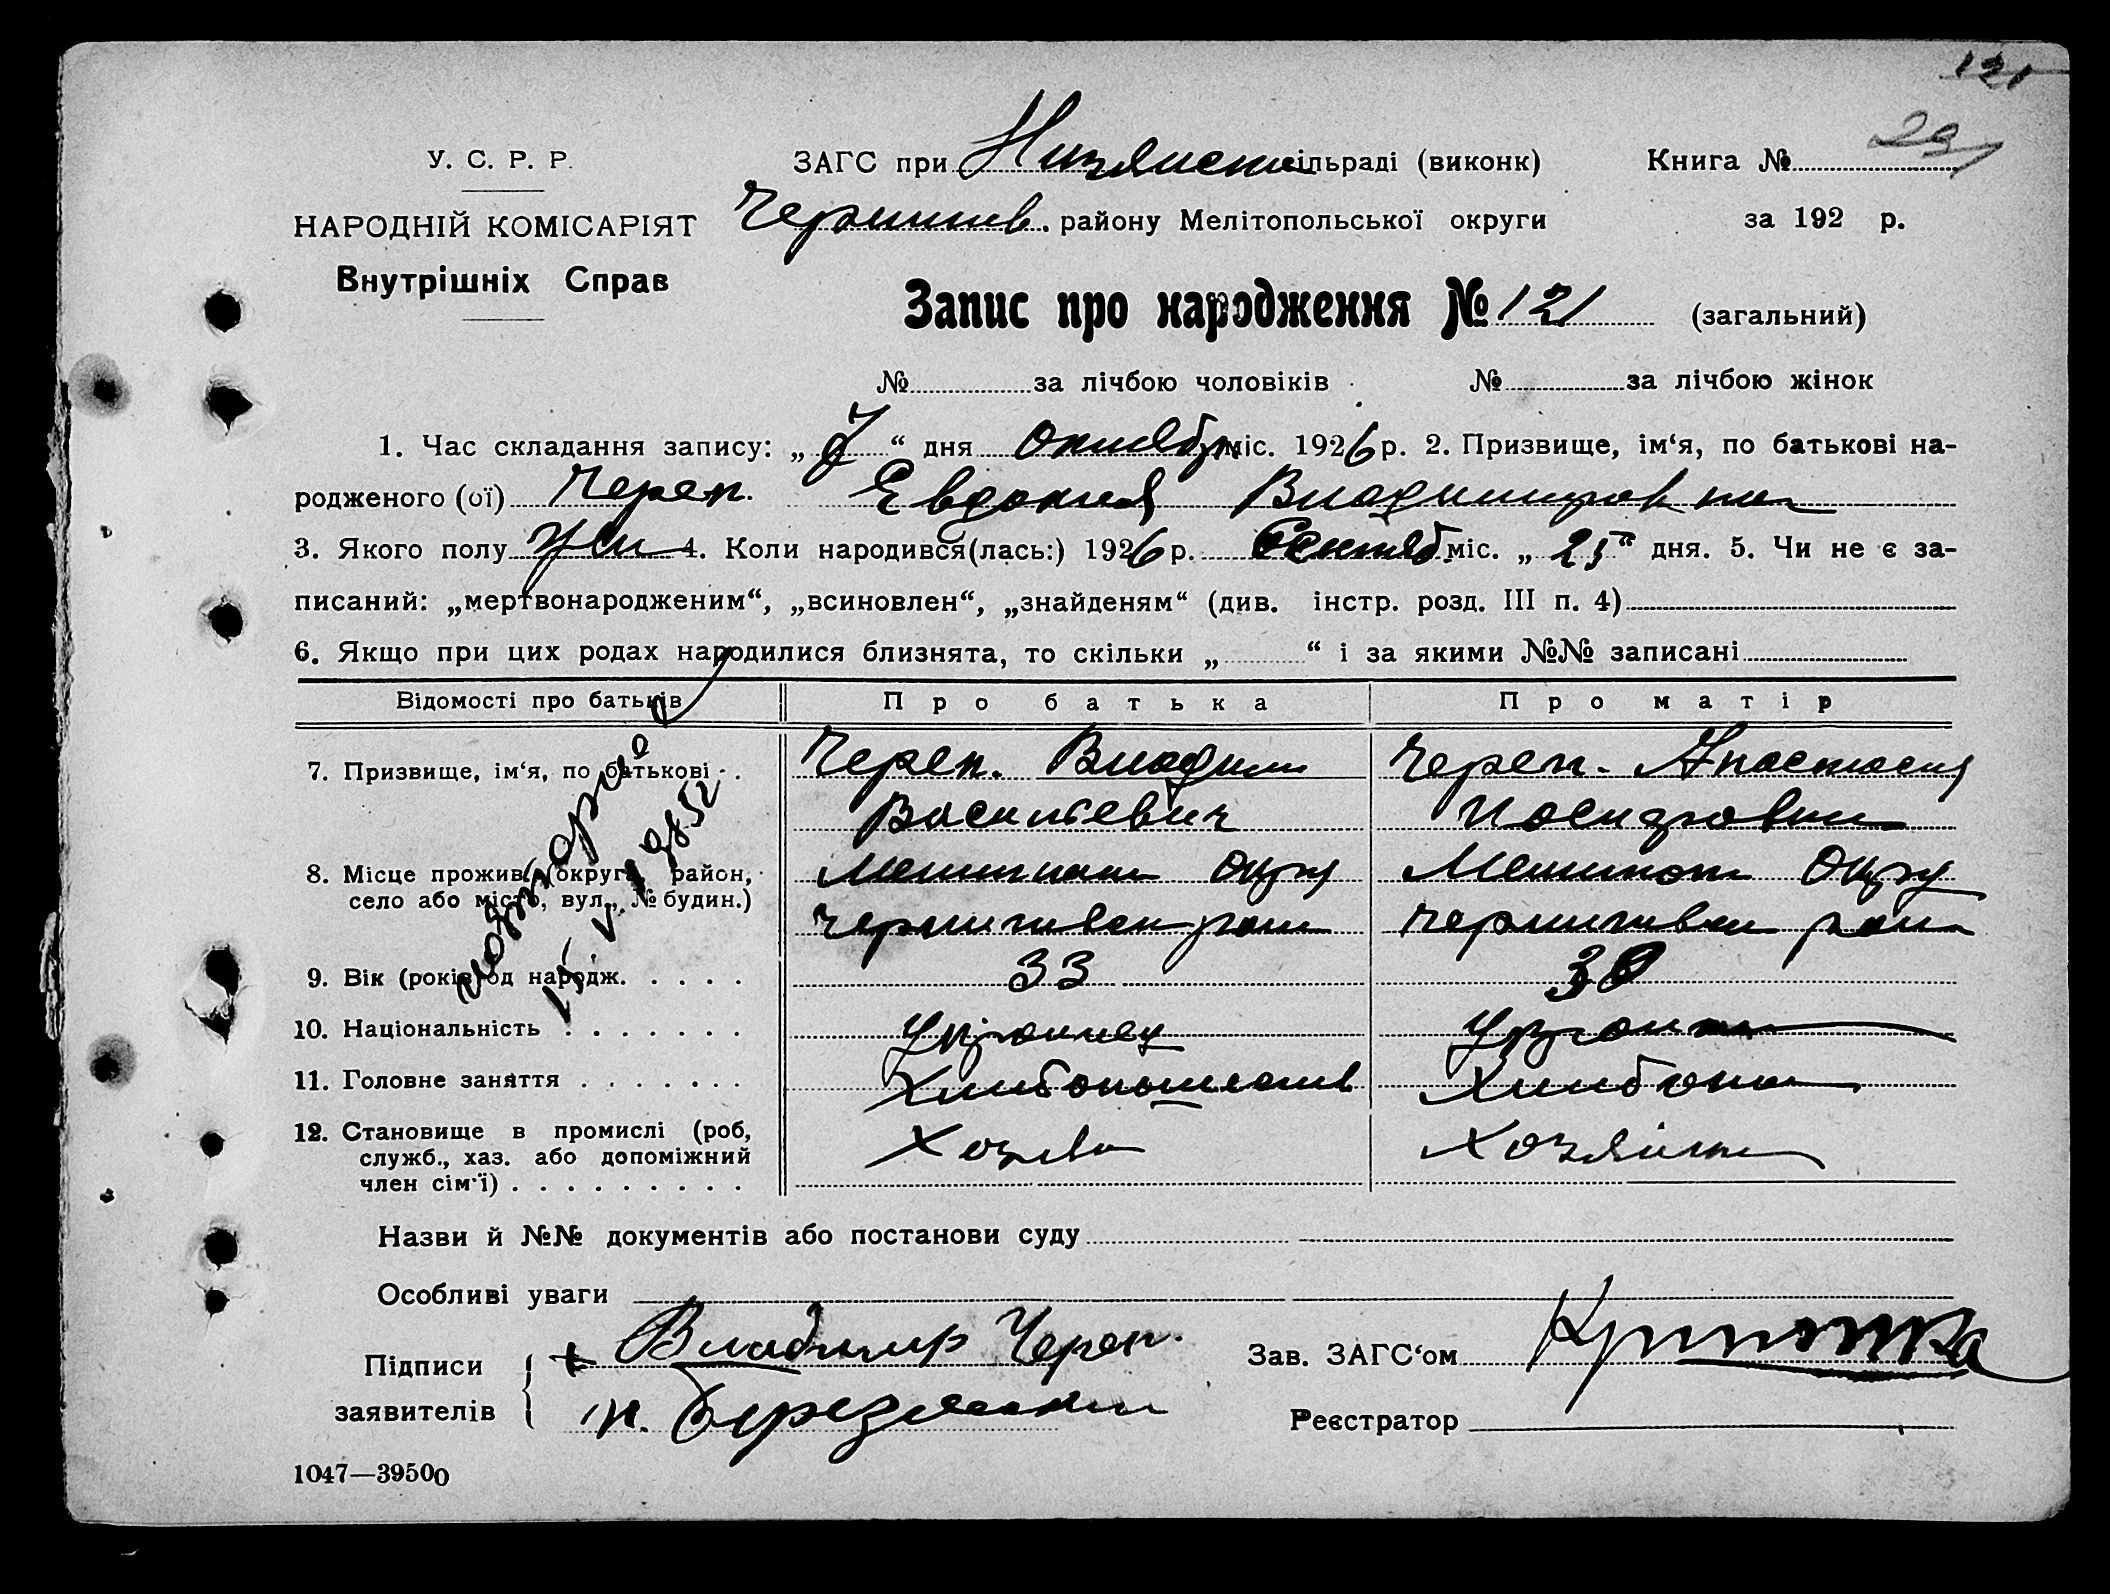 121
29
У. С. Р. Р.
ЗАГС при Низянськ сільраді (виконк)
Книга №
НАРОДНІЙ КОМІСАРІЯТ
Чернигив. району Мелітопольської округи
за 192 р.
Внутрішніх Справ
Запис про народження № 121 (загальний)
№ за лічбою чоловіків № за лічбою жінок
1. Час складання запису: „ 7 “ дня Октябр міс. 1926 р. 2. Призвище, ім‘я, по батькові на-
родженого (ої) Череп. Евдокия Владимировна
3. Якого полу жен 4. Коли народився(лась:) 1926 р. Сентяб. міс. „ 25 “ дня. 5. Чи не є за-
писаний: „мертвонародженим“, „всиновлен“, „знайденям“ (див. інстр. розд. III п. 4)
6. Якщо при цих родах народилися близнята, то скільки „ “ і за якими №№ записані
Відомості про батьків
Про батька
Про матір
7. Призвище, ім‘я, по батькові
Череп. Владим
Череп. Анастасия
Василевич
повторно
8. Місце прожив. (округа, район,
село або місто, вул., № будин.)
Округ
Округ
Чернигивск рай
Чернигивск рай
9. Вік (років) од народж.
33
30
10. Національність
Украинец
Украинк
11. Головне заняття
12. Становище в промислі (роб,
служб., хаз. або допоміжний
член сім‘ї)
Хозяин
Хозяйка
Назви й №№ документів або постанови суду
Особливі уваги
Підписи
заявителів
+ Владимир Череп.
Зав. ЗАГС‘ом
Реєстратор
1047—39500